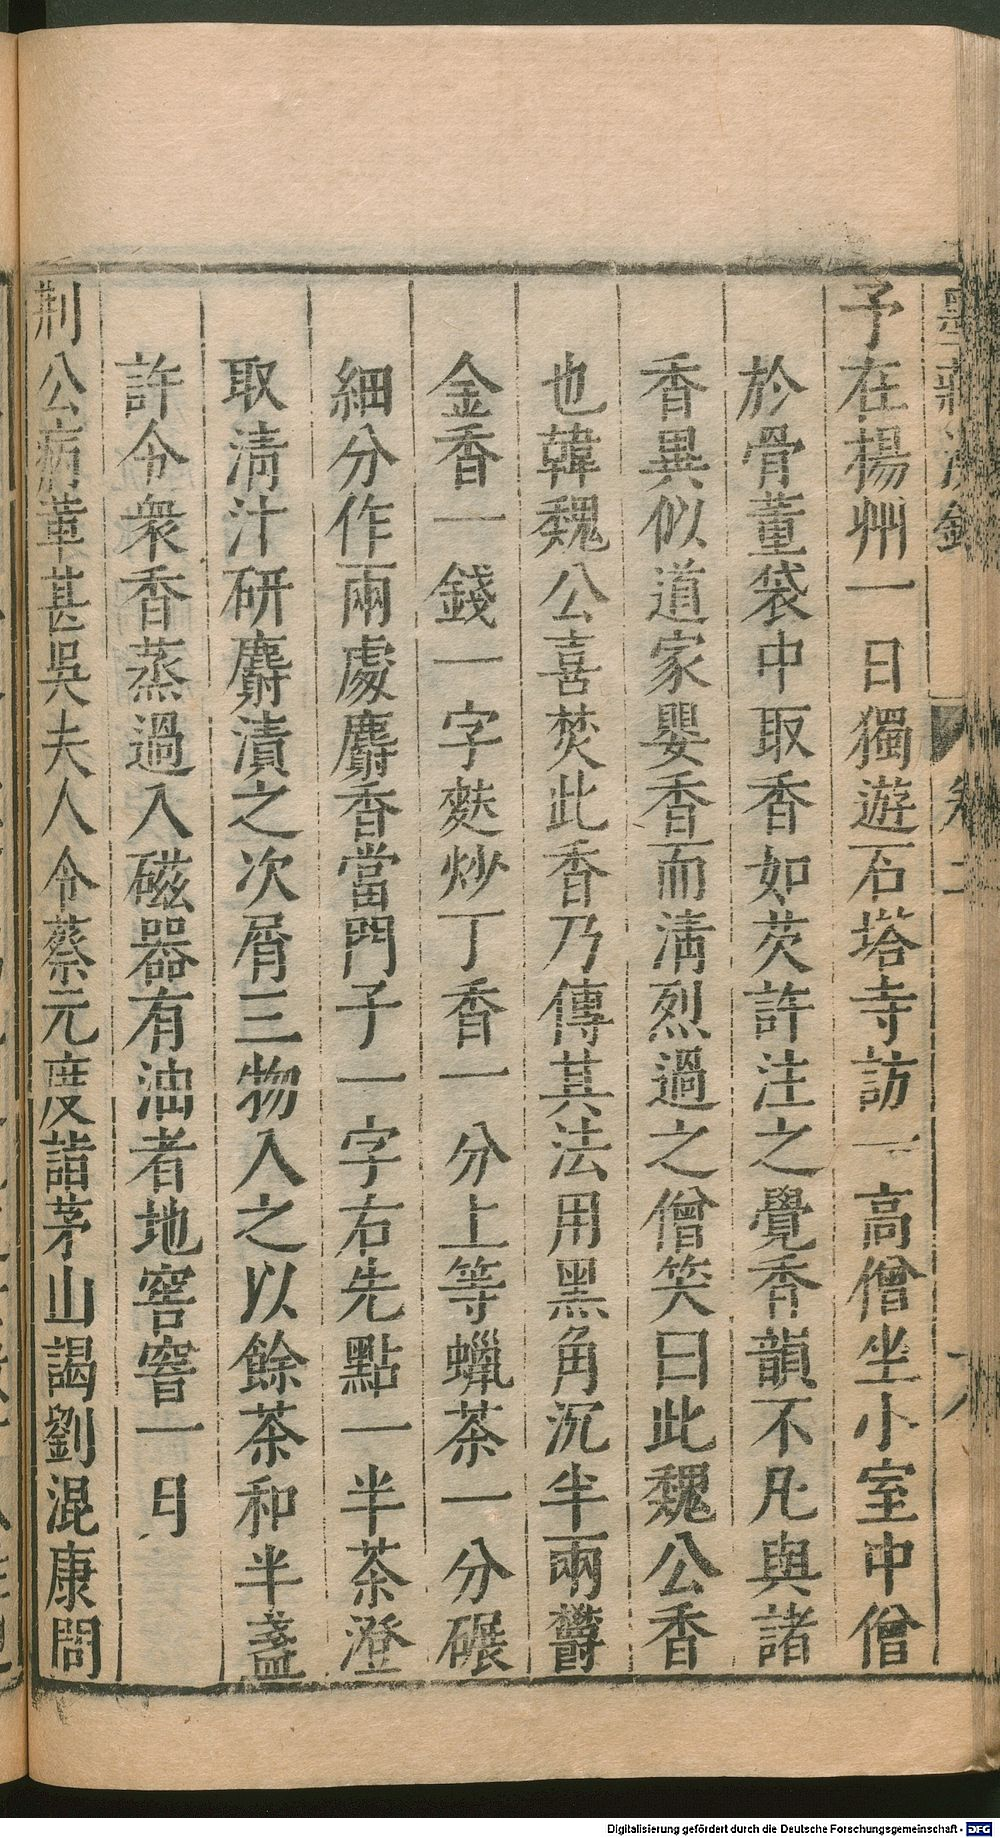 墨莊漫錄 卷二
予在楊州一日獨遊石塔寺訪一高僧坐小室中僧
於骨董袋中取香如芡許注之覺香韻不凡與諸
香異似道家嬰香而清烈過之僧笑曰此魏公香
也韓魏公喜焚此香乃傳其法用黑角沉半兩欝
金香一錢一字麩炒丁香一分上等蠟茶一分碾
細分作兩處麝香當門子一字右先點一半茶澄
取清汁研麝漬之次屑三物入之以餘茶和半盞
許令衆香蒸過入磁器有油者地窖窨一日
荆公病革甚吳夫人令蔡元度詣茅山謁劉混康問
Digitalisierung gefördert durch die Deutsche Forschungsgemeinschaft - DFG